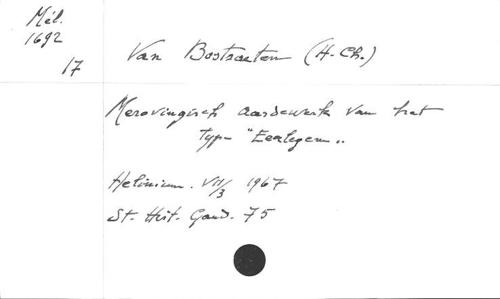 Mél.
1692
17
Van Bostraeten (H. Ch.)
Merovingisch aardewerk van het
type "Eerlegem"
Helinium. VII/3 1967
St. Hist. Gand. 75